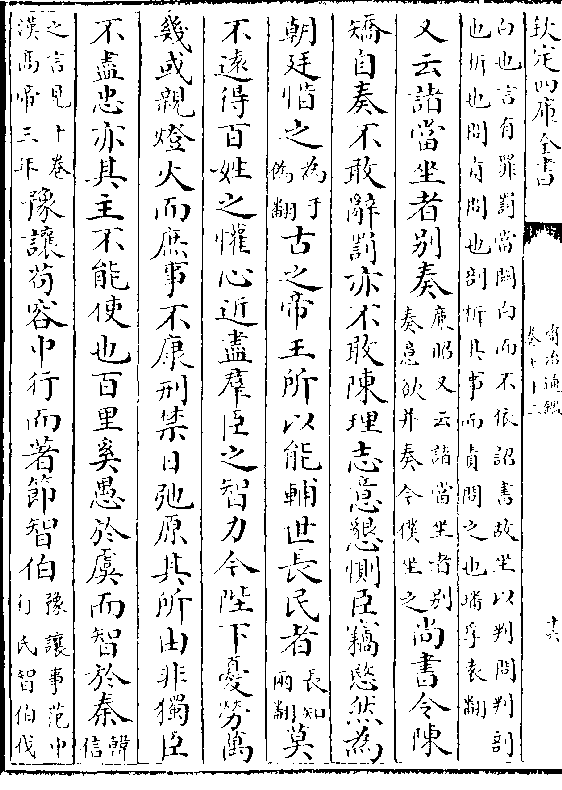 欽定四庫全書
資治通鑑
卷七十二
十六
白也言有罪罰當關白而不依詔書故坐以判問判剖
也析也問責問也剖析其事而責問之也璠孚袁翻
又云諸當坐者別奏廉昭又云諸當坐者別
奏意欲并奏令僕坐之尚書令陳
矯自奏不敢辭罰亦不敢陳理志意懇惻臣竊愍然為
朝廷惜之為于
偽翻古之帝王所以能輔世長民者長知
兩翻莫
不遠得百姓之懽心近盡羣臣之智力今陛下憂勞萬
幾或親燈火而庶事不康刑禁日弛原其所由非獨臣
不盡忠亦其主不能使也百里奚愚於虞而智於秦韓
信
之言見十卷
漢高帝三年豫讓苟容中行而著節智伯豫讓事范中
行氏智伯伐